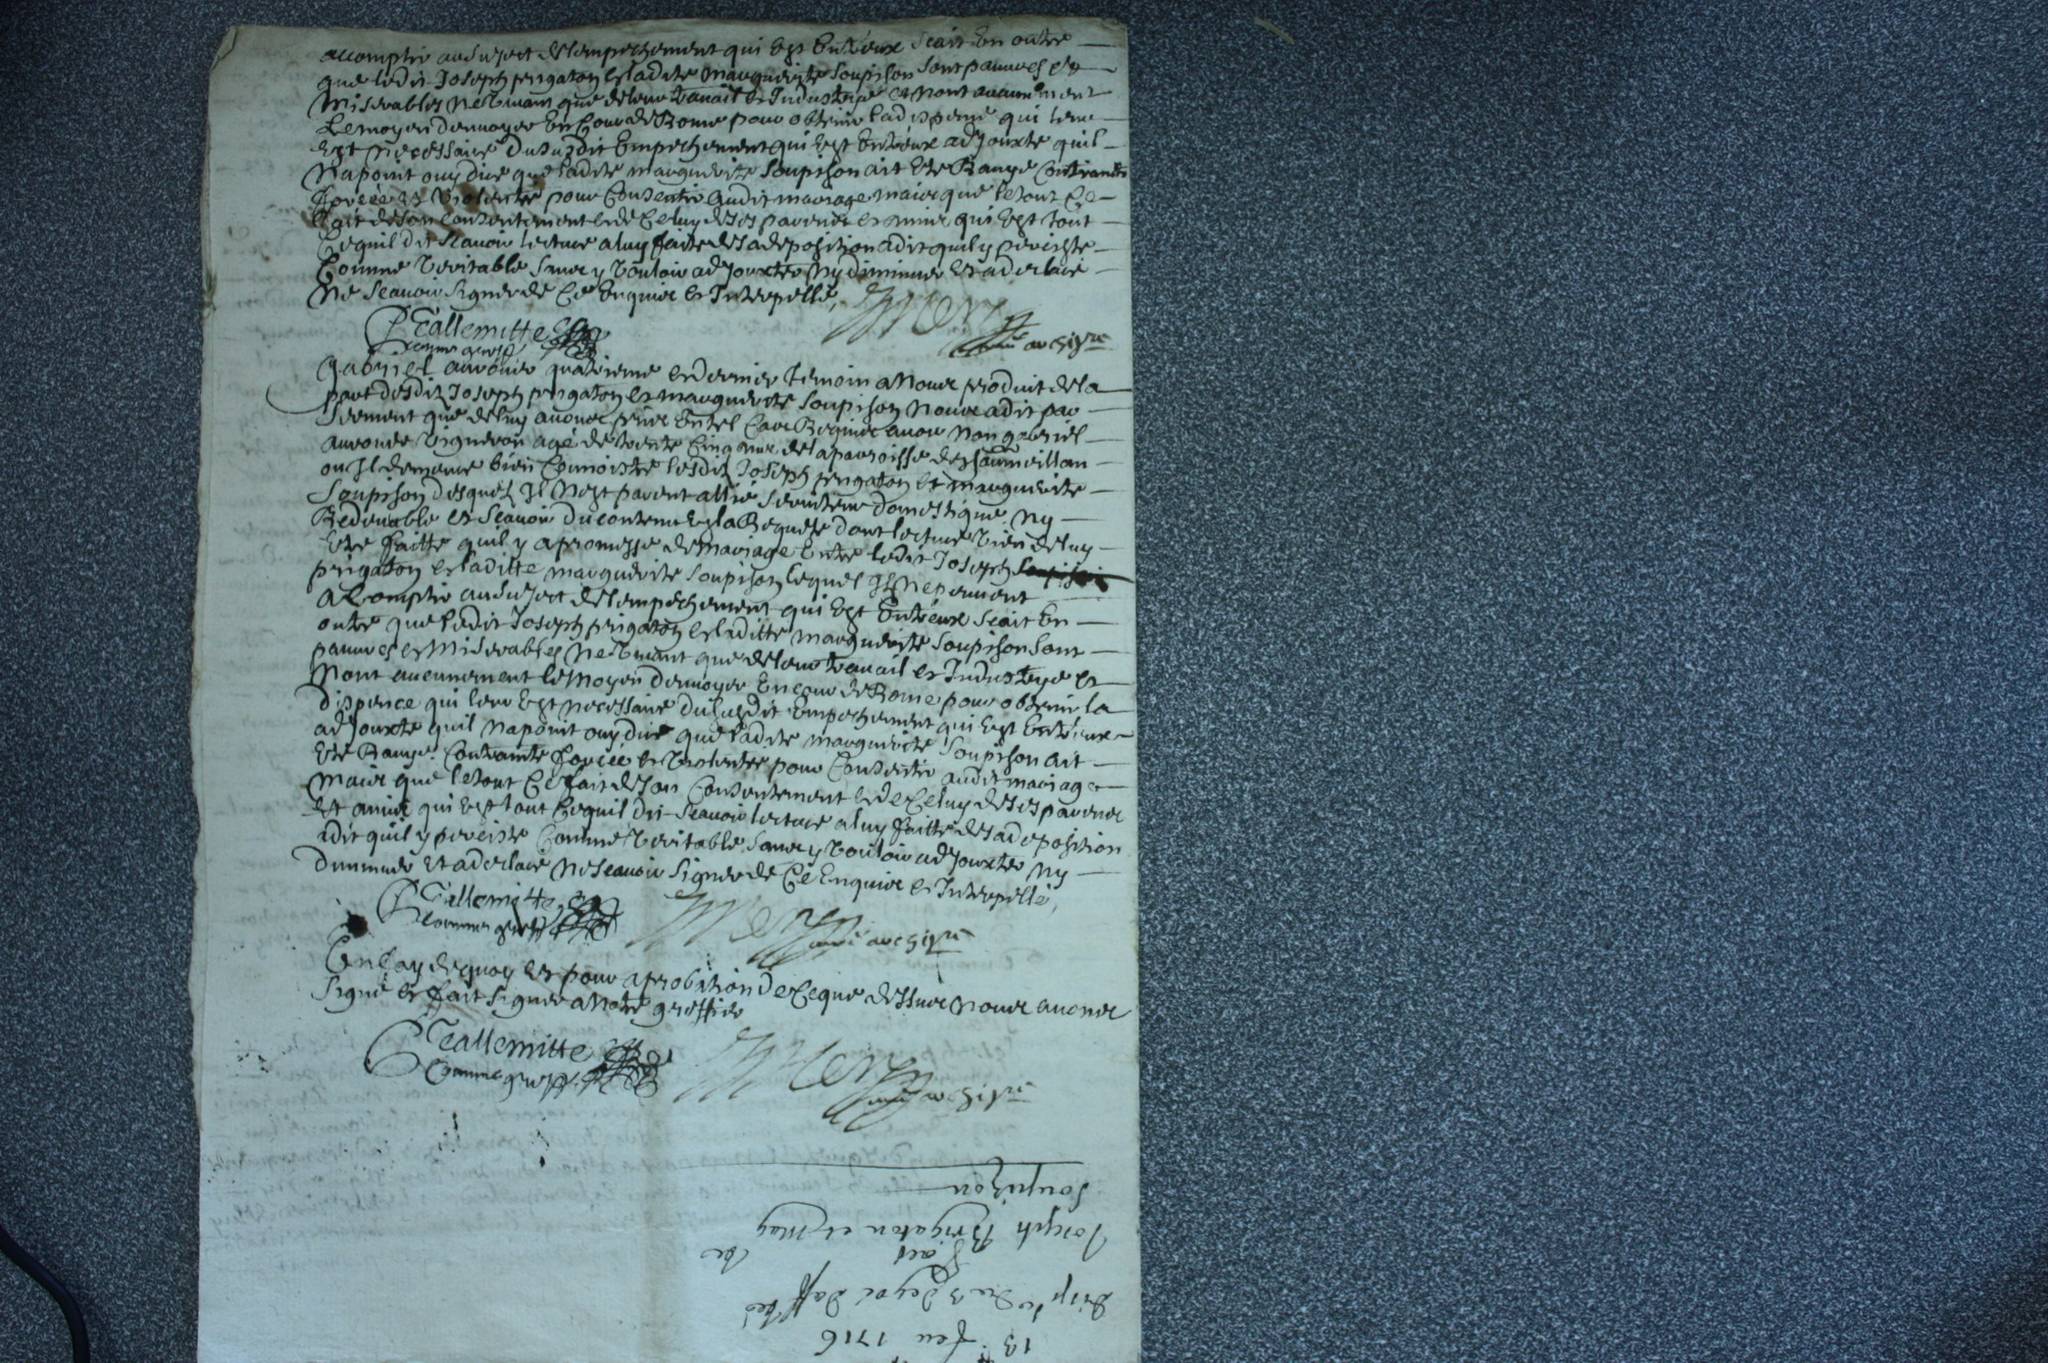 accomplir au suject de lempechement qui est Entreux scait En outre
que ledit Joseph prigaton et ladite marguerite soupison sont pauvres et
Miserables ne vivant que de leur travail et Industrye et nont aucunement
Le moyen denvoyer En Cour de Rome pour obtenir la dispence qui leur
est necessaire du susdit Empechement qui est Entreux adjouxte quil
Na point ouy dire que ladite marguerite soupison ait Ete Ravye Contrainte
forcée et violentée pour Consentir audit mariage mais que le tout Ce
fait de son consentement et de Celuy de ses parens et amis qui est tout
Ce quil dit scavoir lecture a luy faite de sa deposition a dit quil y perciste
Comme veritable sans y vouloir adjouxter ny diminuer et a declaré
Ne scavoir signer de Ce Enquis et Interpellé,
Tallemitte
comme greff
curé archipre
Gabriel auronier quatrieme et dernier temoin a Nous produit de la
part desdits Joseph prigaton et marguerite soupison Nous a dit par
serment que de luy avons pris En tel Cas Requis avoir Nom gabriel
vigneron agé de trente Cinq ans de la parroisse de
ou Il demeure bien Connoistre lesdits Joseph prigaton et marguerite
Soupison desquels Il Nest parent allié serviteur domestique Ny
Redevable et scavoir du contenu En la Requete dont lecture vien de luy
Etre faitte quil y a promesse de mariage Entre ledit Joseph
prigaton et laditte marguerite soupison lequel Ils Ne peuvent
acomplir au suject de lempechement qui est Entreux scait En
outre que ledit Joseph prigaton et laditte marguerite soupison sont
pauvres et Miserables Ne vivant que de leur travail et Industrye et
Nont aucunement le moyen denvoyer En cour de Rome pour obtenir la
dispence qui leur est necessaire du susdit Empechement qui est Entreux
adjouxte quil Na point ouy dire que ladite marguerite Soupison ait
Ete Ravye Contrainte forcée et violentée pour Consentir audit mariage
mais que le tout Ce fait de son Consentement et de Celuy de ses parens
et amis qui est tout Ce quil dit scavoir lecture a luy faitte de sa deposition
a dit quil y perciste Comme veritable sans y vouloir adjouxter Ny
diminuer et a declaré Ne scavoir signer de Ce Enquis et Interpellé,
Tallemitte
comme greff
curé archipre
En foy de quoy et pour aprobation de Ce que dessus Nous avons
signé et fait signer a Notre greffier
Tallemitte
Comme greff
curé archipre
13 feu 1716
du 3
de
Joseph Prigaton et Mar
Soupizon